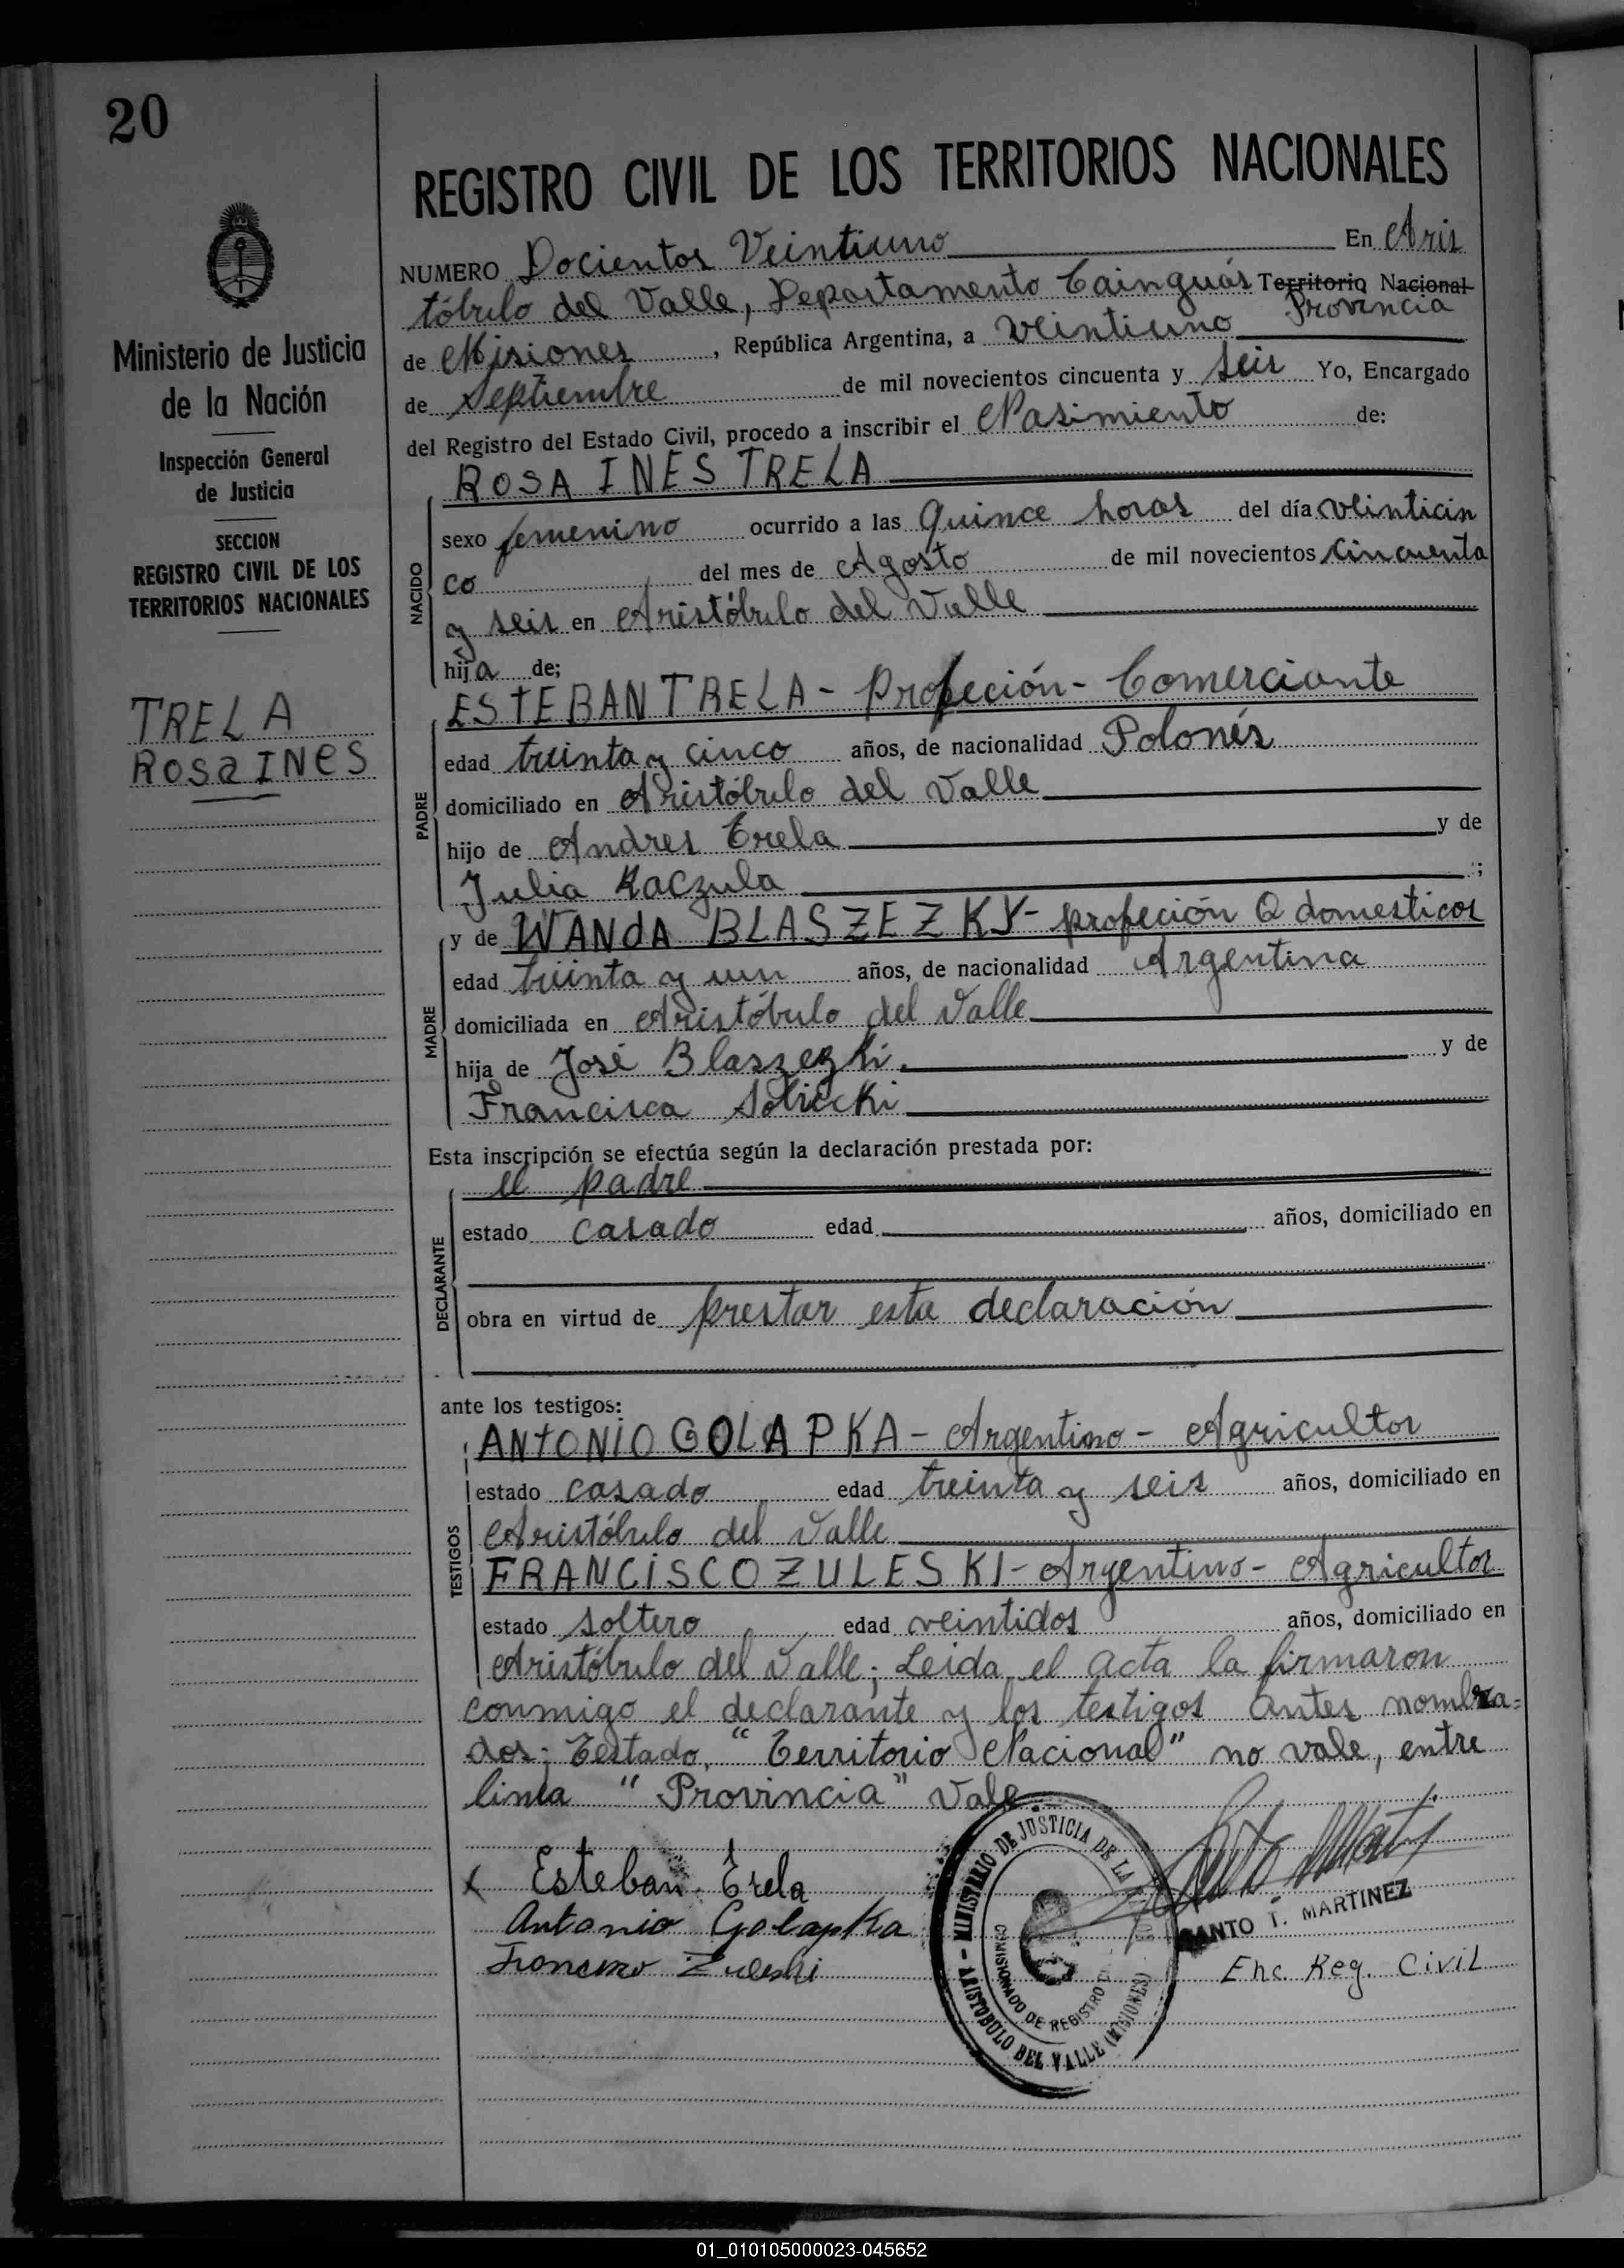 20
REGISTRO CIVIL DE LOS TERRITORIOS NACIONALES
Ministerio de Justicia
de la Nación
Inspección General
de Justicia
SECCION
REGISTRO CIVIL DE LOS
TERRITORIOS NACIONALES
TRELA
Rosa INES
NUMERO Docientos Veintiuno En Aris
tóbulo del Valle, Departamento Cainguás Territorio Nacional
Provincia
de Misiones, República Argentina, a veintiuno
de Septiembre de mil novecientos cincuenta y seis Yo, Encargado
del Registro del Estado Civil, procedo a inscribir el Nasimiento de:
NACIDO
ROSA INES TRELA
sexo femenino ocurrido a las Quince horas del día veinticin
co del mes de Agosto de mil novecientos cincuenta
y seis en Aristóbulo del Valle
hija de;
PADRE
ESTEBAN TRELA - Profeción - Comerciante
edad treinta y cinco años, de nacionalidad Polonés
domiciliado en Aristóbulo del Valle
hijo de Andres Trela y de
Julia Kaczula ;
MADRE
y de WANdA BLASZEZKY - profeción Q domesticos
edad treinta y un años, de nacionalidad Argentina
domiciliada en Aristóbulo del Valle
hija de José Blaszezki. y de
Francisca
Esta inscripción se efectúa según la declaración prestada por:
DECLARANTE
el padre
estado casado edad años, domiciliado en
obra en virtud de prestar esta declaración
ante los testigos:
TESTIGOS
ANTONIO GOLAPKA - Argentino - Agricultor
estado casado edad treinta y seis años, domiciliado en
Aristóbulo del Valle
FRANCISCO ZULESKI - Argentino - Agricultor
estado soltero edad veintidos años, domiciliado en
Aristóbulo del Valle; Leida el acta la firmaron
conmigo el declarante y los testigos antes nombra=
dos; Testado, "Territorio Nacional" no vale, entre
linea "Provincia" Vale
x Esteban Trela
Antonio Golapka
Francisco Zuleski
MINISTERIO DE JUSTICIA DE LA
ARISTOBULO DEL VALLE (MISIONES)
COMISIONADO DE REGISTRO
SANTO T. MARTINEZ
Enc. Reg. Civil
01_010105000023-045652